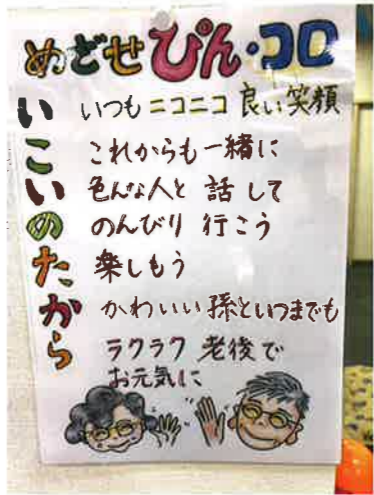 めどせ ぴん・コロ
いこいのたから
いつも ニコニコ 良い笑顔
これからも一緒に
色んな人と 話して
のんびり 行こう
楽しもう
かわいい孫といつまでも
ラクラク 老後で
お元気に